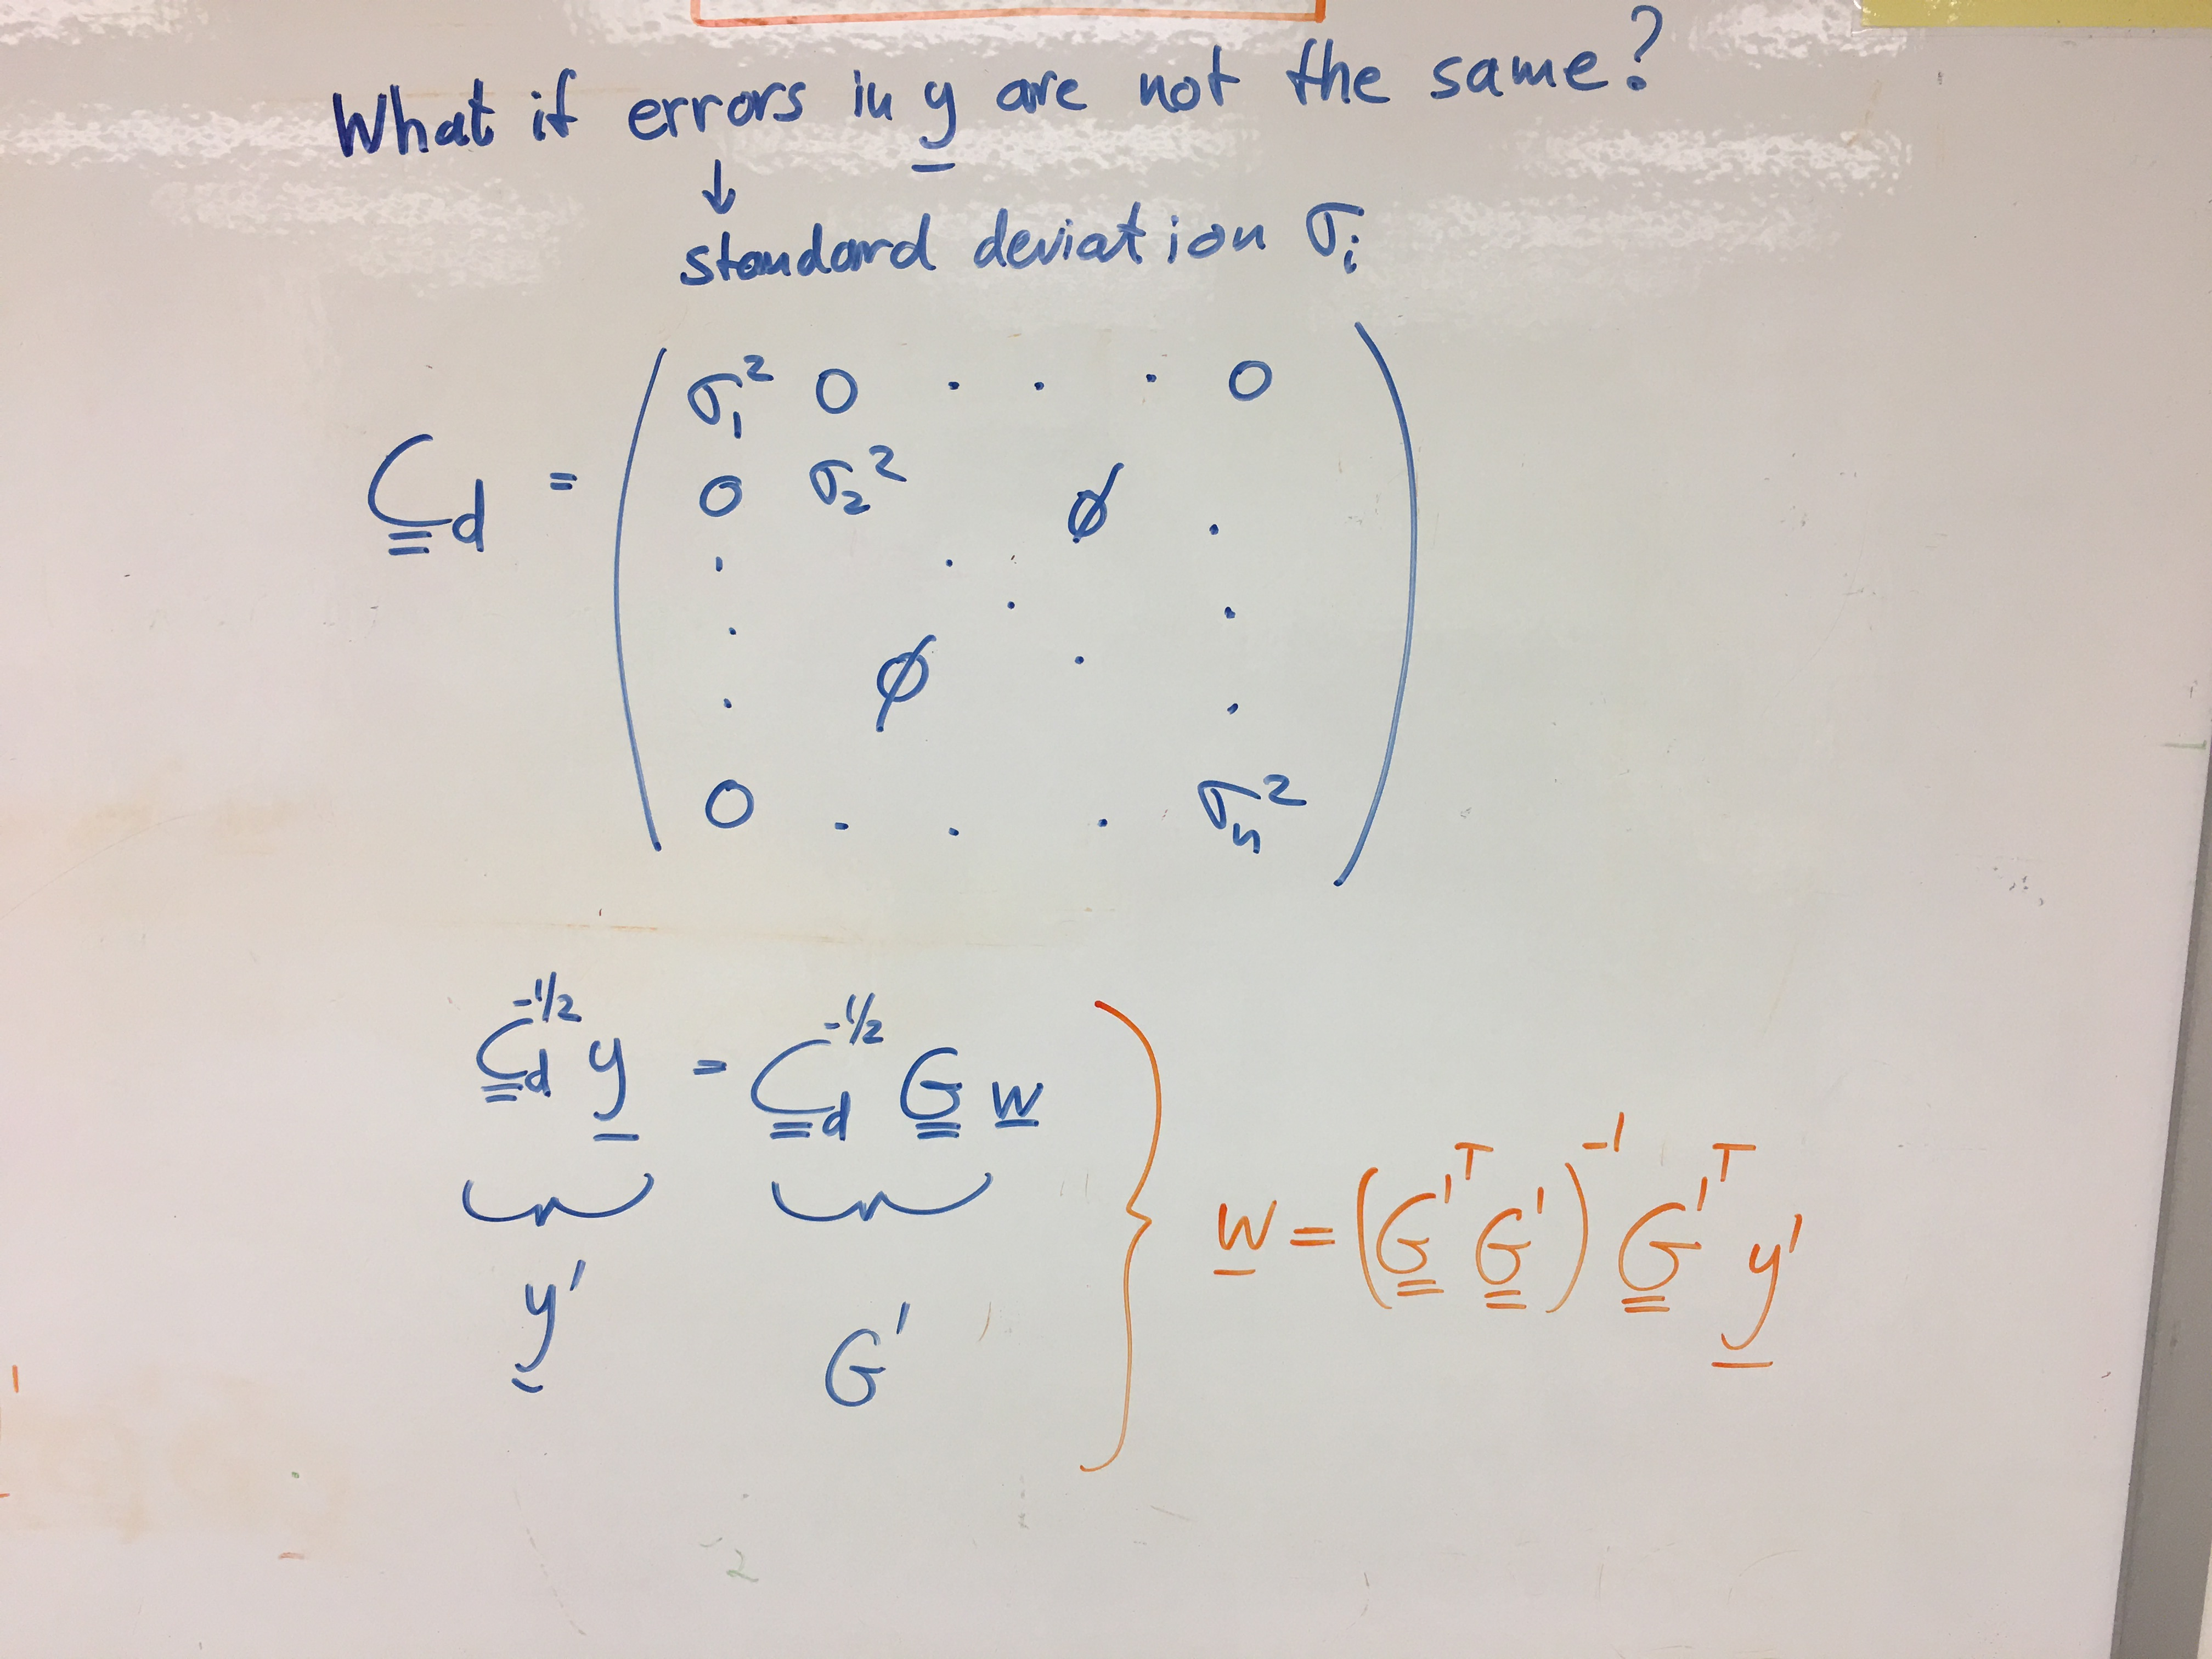 What if errors in y are not the same?
↓
standard deviation σᵢ
σ₁² 0 . . . 0
C_d = 0 σ₂² ∅ .
. . .
. . .
. ∅ . .
0 . . . σₙ²
C_d^(-1/2) y = C_d^(-1/2) G w
w = (G'ᵀ G')⁻¹ G'ᵀ y'
y' G'